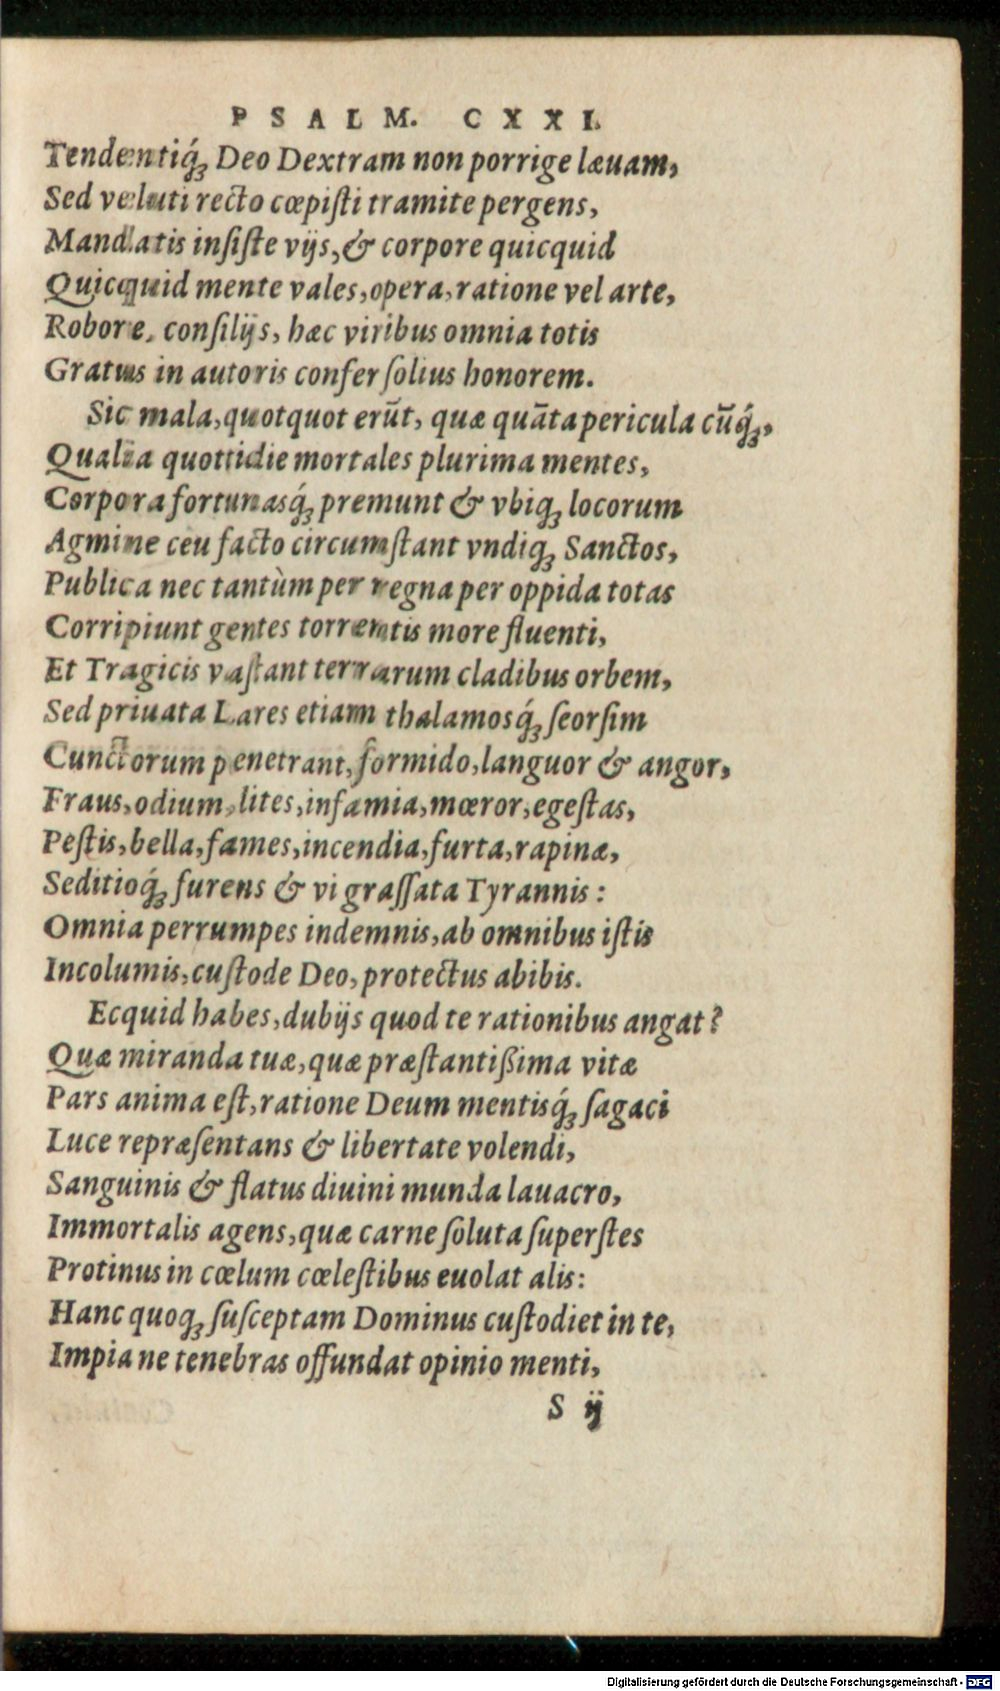 PSALM. CXXI.
Tendentiq́ꝫ Deo Dextram non porrige læuam,
Sed veluti recto cœpiſti tramite pergens,
Mandatis inſiſte vijs, & corpore quicquid
Quicquid mente vales, opera, ratione vel arte,
Robore, conſilijs, hæc viribus omnia totis
Gratus in autoris confer ſolius honorem.
Sic mala, quotquot erūt, quæ quāta pericula cūq́ꝫ,
Qualia quottidie mortales plurima mentes,
Corpora fortunasq́ꝫ premunt & vbiqꝫ locorum
Agmine ceu facto circumſtant vndiqꝫ Sanctos,
Publica nec tantùm per regna per oppida totas
Corripiunt gentes torrentis more fluenti,
Et Tragicis vaſtant terrarum cladibus orbem,
Sed priuata Lares etiam thalamosq́ꝫ ſeorſim
Cunctorum penetrant, formido, languor & angor,
Fraus, odium, lites, infamia, mœror, egeſtas,
Peſtis, bella, fames, incendia, furta, rapinæ,
Seditioq́ꝫ furens & vi graſſata Tyrannis:
Omnia perrumpes indemnis, ab omnibus iſtis
Incolumis, cuſtode Deo, protectus abibis.
Ecquid habes, dubijs quod te rationibus angat?
Quæ miranda tuæ, quæ præſtantißima vitæ
Pars anima eſt, ratione Deum mentisq́ꝫ ſagaci
Luce repræſentans & libertate volendi,
Sanguinis & flatus diuini munda lauacro,
Immortalis agens, quæ carne ſoluta ſuperſtes
Protinus in cœlum cœleſtibus euolat alis:
Hanc quoqꝫ ſuſceptam Dominus cuſtodiet in te,
Impia ne tenebras offundat opinio menti,
S ij
Digitalisierung gefördert durch die Deutsche Forschungsgemeinschaft - DFG